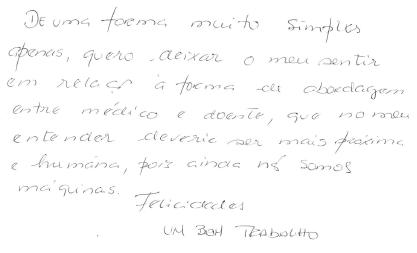 De uma forma muito simples
apenas, quero deixar o meu sentir
em relaçº à forma de abordagem
entre médico e doente, que no meu
entender deveria ser mais próxima
e humana, pois ainda nº somos
máquinas.
Felicidades
UM BOM TRABALHO